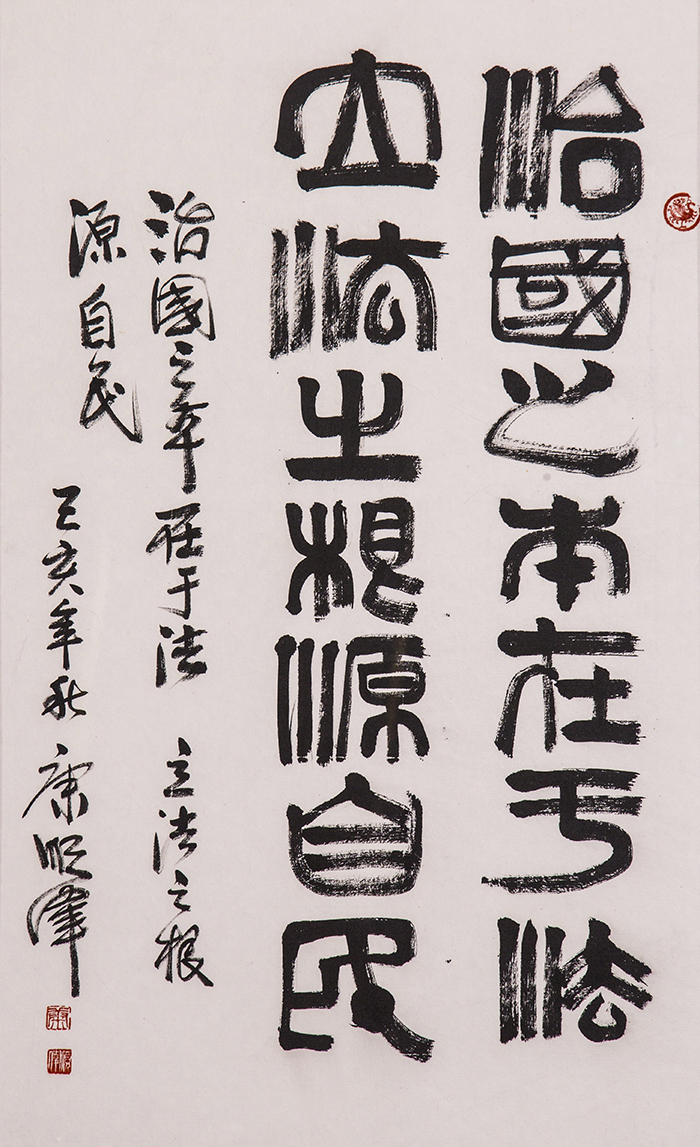 治國之本在于法
立法之根源自民
治國之本在于法 立法之根
源自民
己亥年秋 康